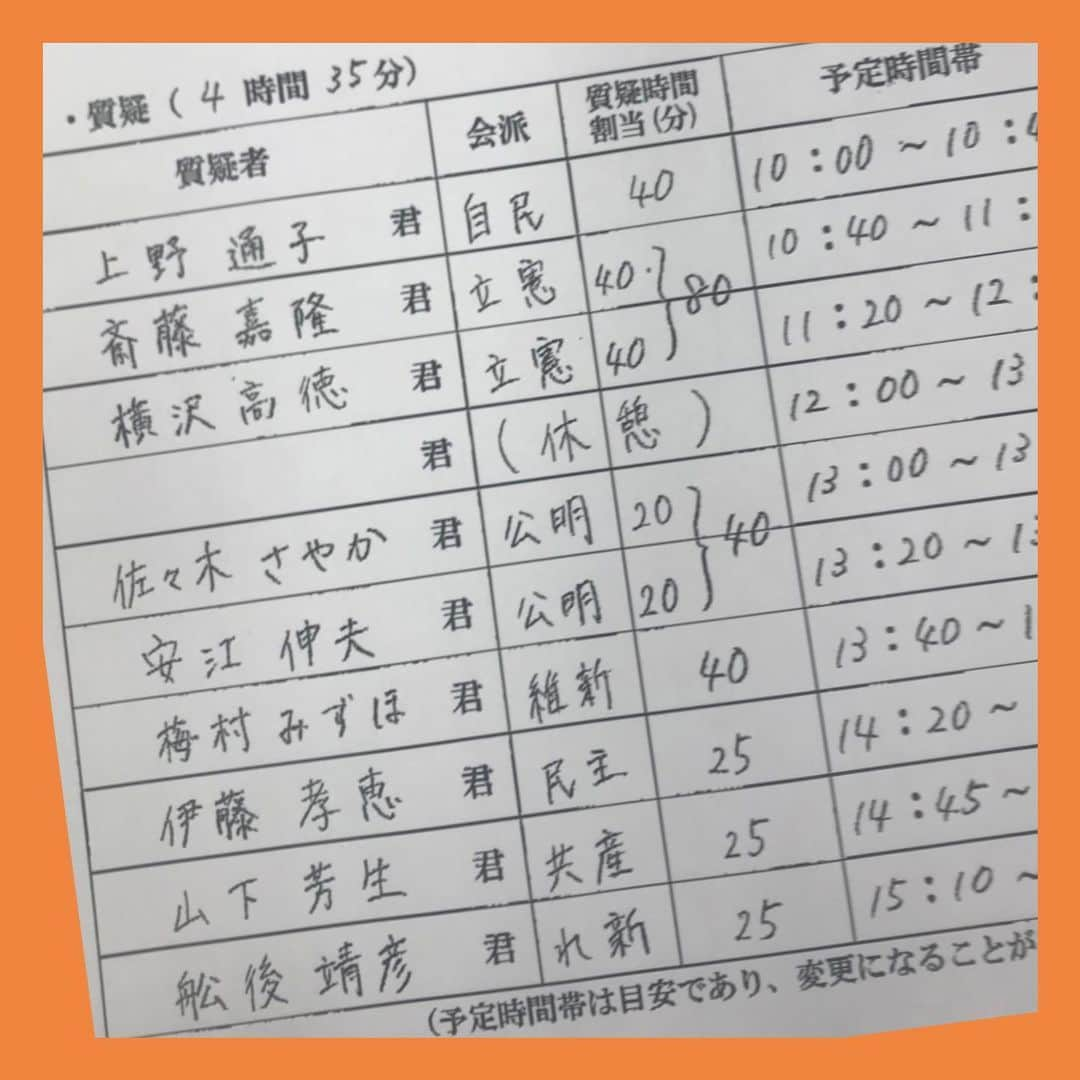 ・質疑（4時間35分）
質疑者 会派 質疑時間割当(分) 予定時間帯
上野 通子 君 自民 40 10:00～10:4
斎藤 嘉隆 君 立憲 40 10:40～11:
横沢高徳 君 立憲 40 80 11:20～12:
君 (休憩) 12:00～13
佐々木 さやか 君 公明 20 13:00～13
安江 伸夫 君 公明 20 40 13:20～13
梅村みずほ 君 維新 40 13:40～1
伊藤 孝恵 君 民主 25 14:20～
山下 芳生 君 共産 25 14:45～
舩後 靖彦 君 れ新 25 15:10～
(予定時間帯は目安であり、変更になることが